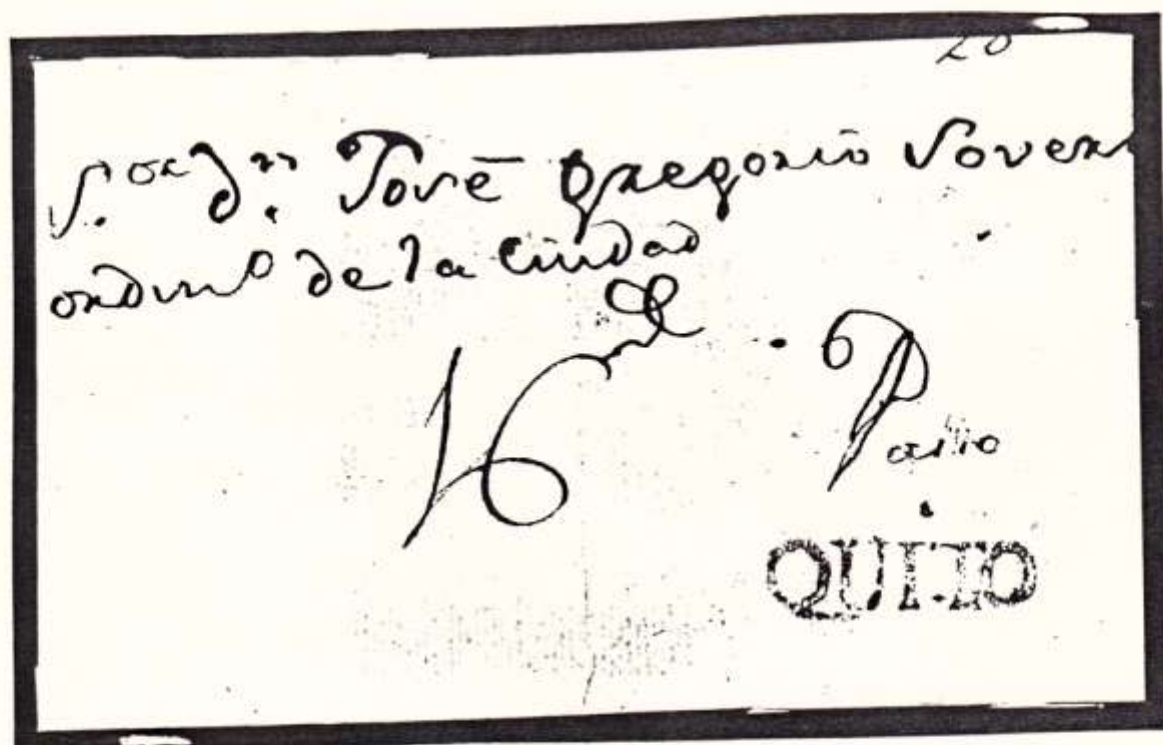 20
S.or d.n Josē Gregorio
ordin.o de la Ciudad
Pasto
QUITO